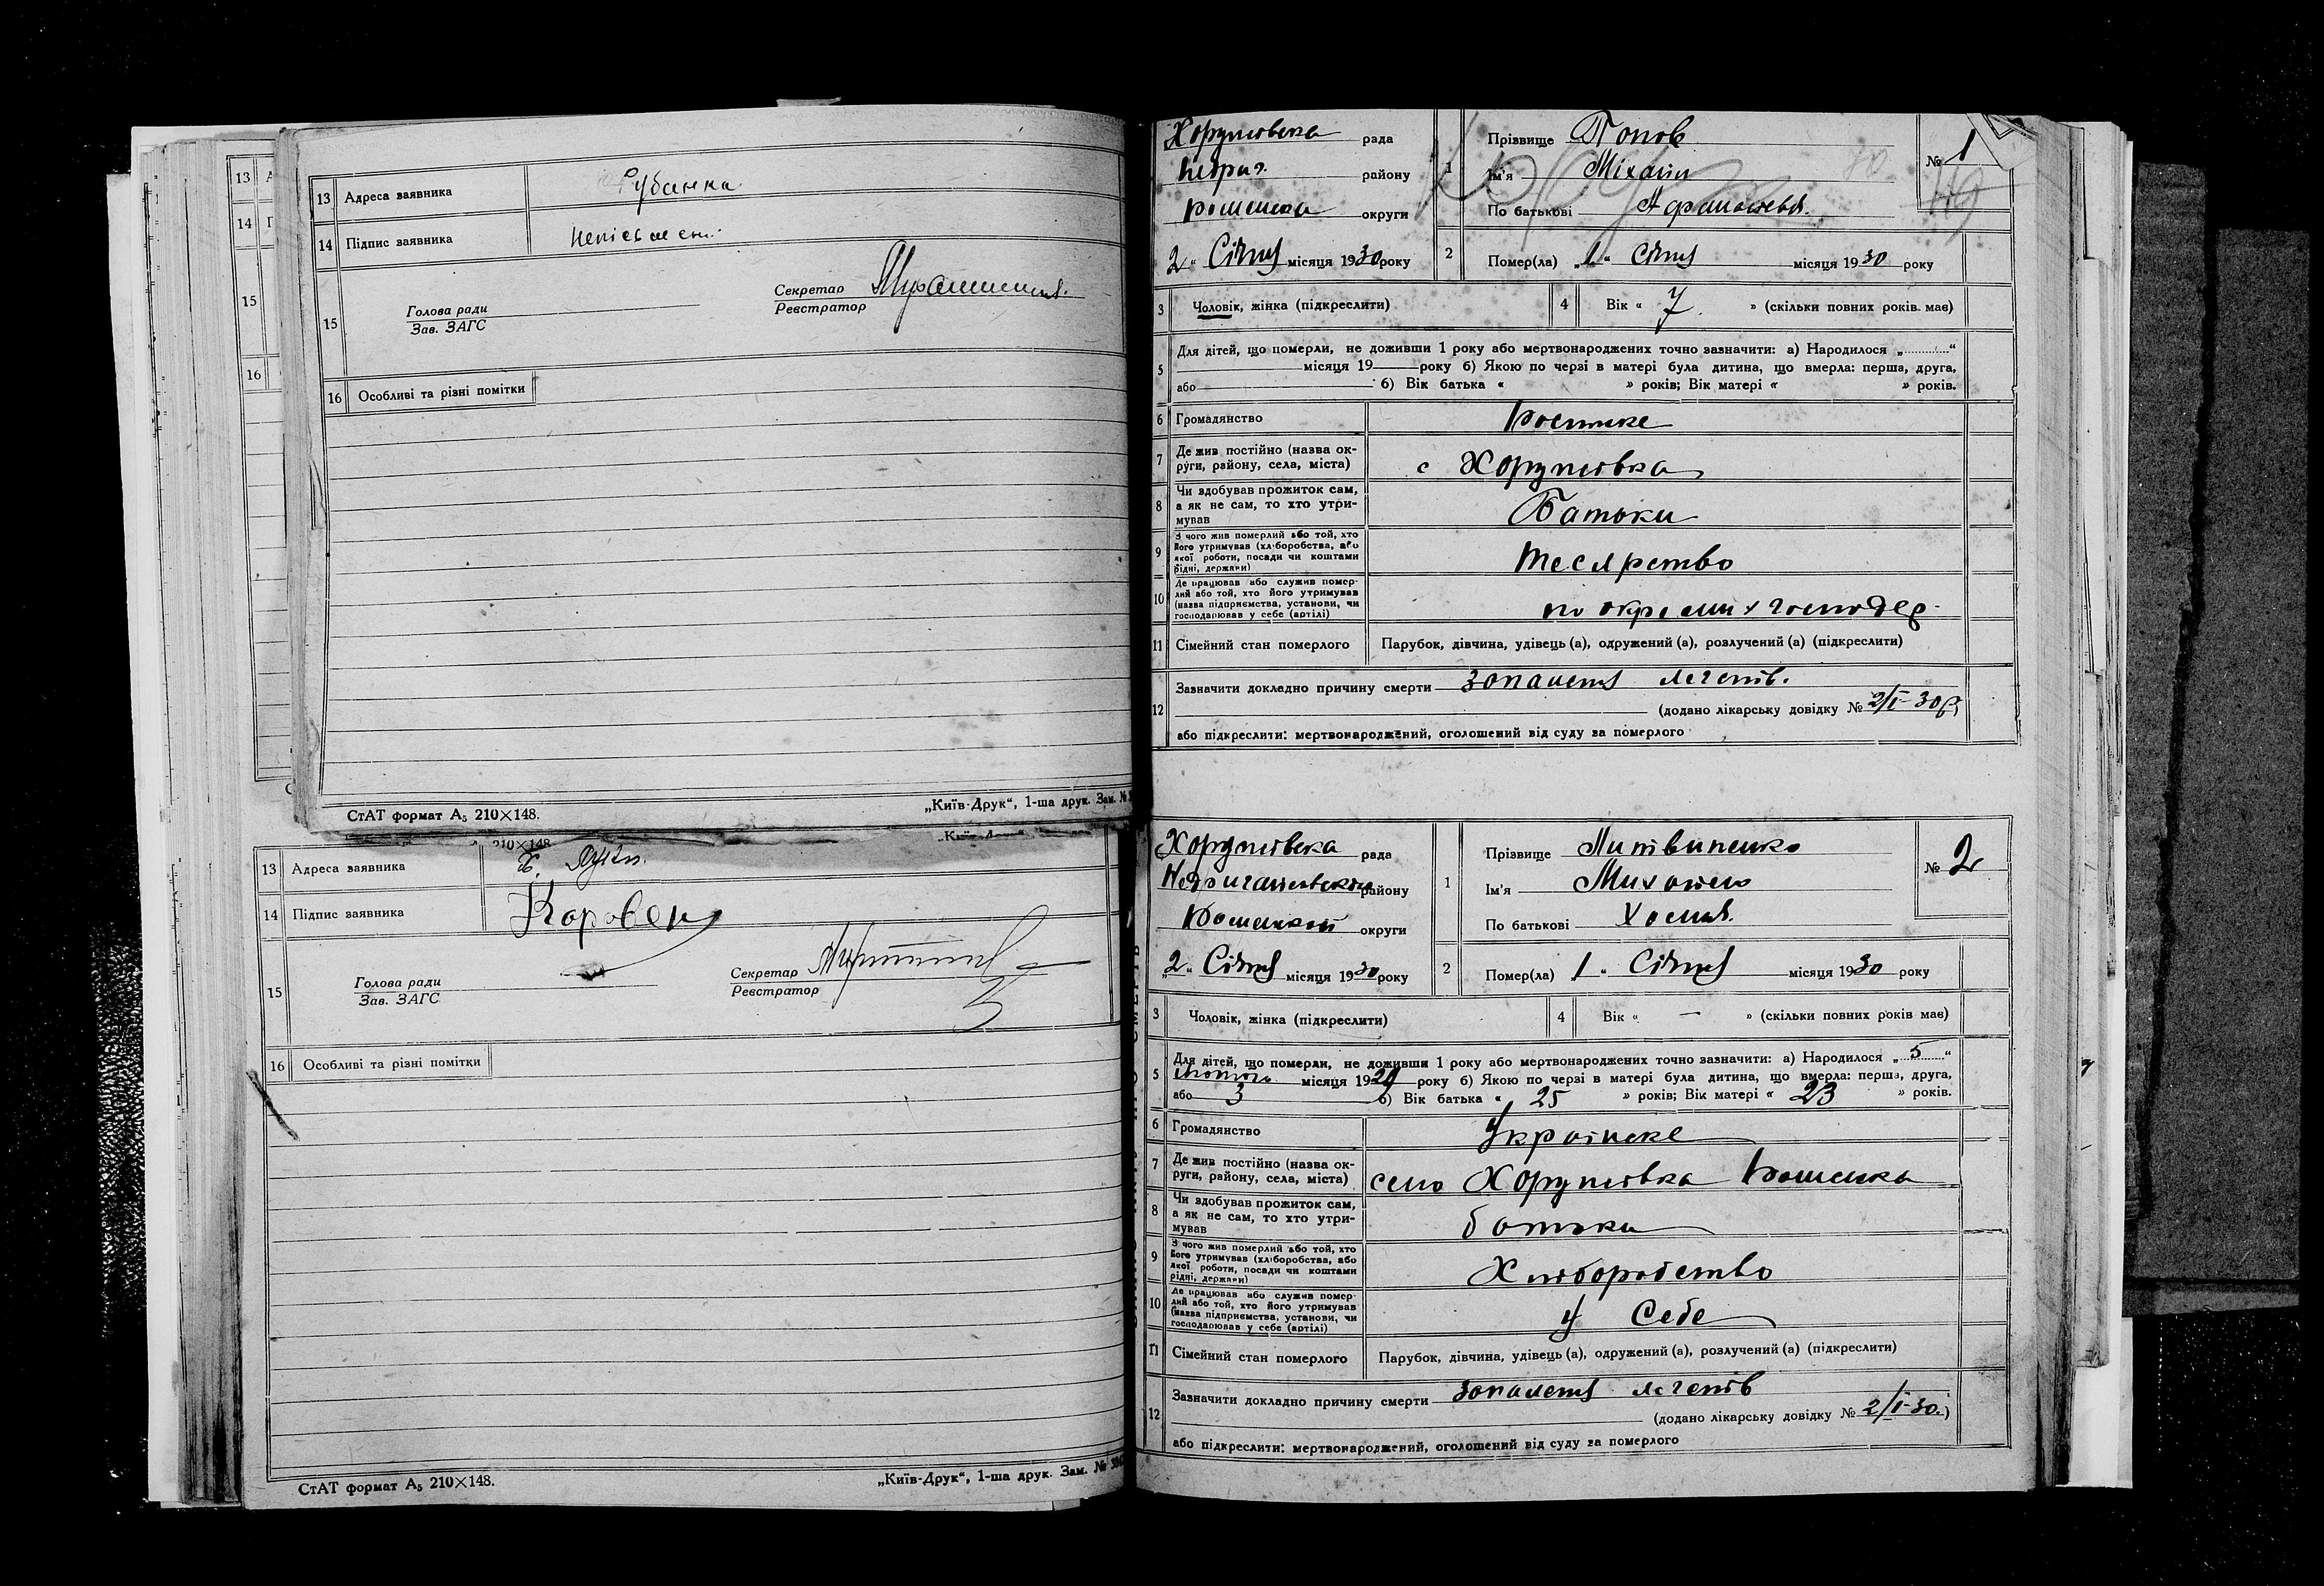 13 Адреса заявника Рубанка
14 Підпис заявника
15 Голова ради
Зав. ЗАГС
Секретар
Реєстратор
16 Особливі та різні помітки
СтАТ формат А5 210×148.
„Київ-Друк“, 1-ша друк. Зам. №
13 Адреса заявника
14 Підпис заявника
15 Голова ради
Зав. ЗАГС
Секретар
Реєстратор
16 Особливі та різні помітки
СтАТ формат А5 210×148.
„Київ-Друк“, 1-ша друк. Зам. №
Хоружівська рада
Недриг. району
Роменська округи
2 „ Січня місяця 1930 року
1 Прізвище Попов
Ім'я Міхаіл
По батькові
№ 1
2 Помер(ла) „1“ Січня місяця 1930 року
3 Чоловік, жінка (підкреслити)
4 Вік « 7 » (скільки повних років має)
5 Для дітей, що померли, не доживши 1 року або мертвонароджених точно зазначити: а) Народилося „ “
місяця 19 року б) Якою по черзі в матері була дитина, що вмерла: перша, друга,
або б) Вік батька « » років; Вік матері « » років.
6 Громадянство
7 Де жив постійно (назва округи, району, села, міста) с Хоружівка
8 Чи здобував прожиток сам, а як не сам, то хто утримував Батьки
9 З чого жив померлий або той, хто його утримував (хліборобства, або якої роботи, посади чи коштами рідні, держави) Теслярство
10 Де працював або служив померлий або той, хто його утримував (назва підприємства, установи, чи господарював у себе (артілі) по окремих господар.
11 Сімейний стан померлого Парубок, дівчина, удівець (а), одружений (а), розлучений (а) (підкреслити)
12 Зазначити докладно причину смерти запалення легенів.
(додано лікарську довідку № 2/I-30р)
або підкреслити: мертвонароджений, оголошений від суду за померлого
Хоружівська рада
району
Роменской округи
„2“ Січня місяця 1930 року
1 Прізвище Литвиненко
Ім'я Михайло
По батькові
№ 2
2 Помер(ла) 1 „ Січня місяця 1930 року
3 Чоловік, жінка (підкреслити)
4 Вік « — » (скільки повних років має)
5 Для дітей, що померли, не доживши 1 року або мертвонароджених точно зазначити: а) Народилося „ 5 “
лютого місяця 1929 року б) Якою по черзі в матері була дитина, що вмерла: перша, друга,
або 3 б) Вік батька « 25 » років; Вік матері « 23 » років.
6 Громадянство Українске
7 Де жив постійно (назва округи, району, села, міста) село Хоружівка Роменска
8 Чи здобував прожиток сам, а як не сам, то хто утримував батьки
9 З чого жив померлий або той, хто його утримував (хліборобства, або якої роботи, посади чи коштами рідні, держави) Хліборобство
10 Де працював або служив померлий або той, хто його утримував (назва підприємства, установи, чи господарював у себе (артілі) У Себе
11 Сімейний стан померлого Парубок, дівчина, удівець (а), одружений (а), розлучений (а) (підкреслити)
12 Зазначити докладно причину смерти запалення легенів
(додано лікарську довідку № 2/I-30.)
або підкреслити: мертвонароджений, оголошений від суду за померлого